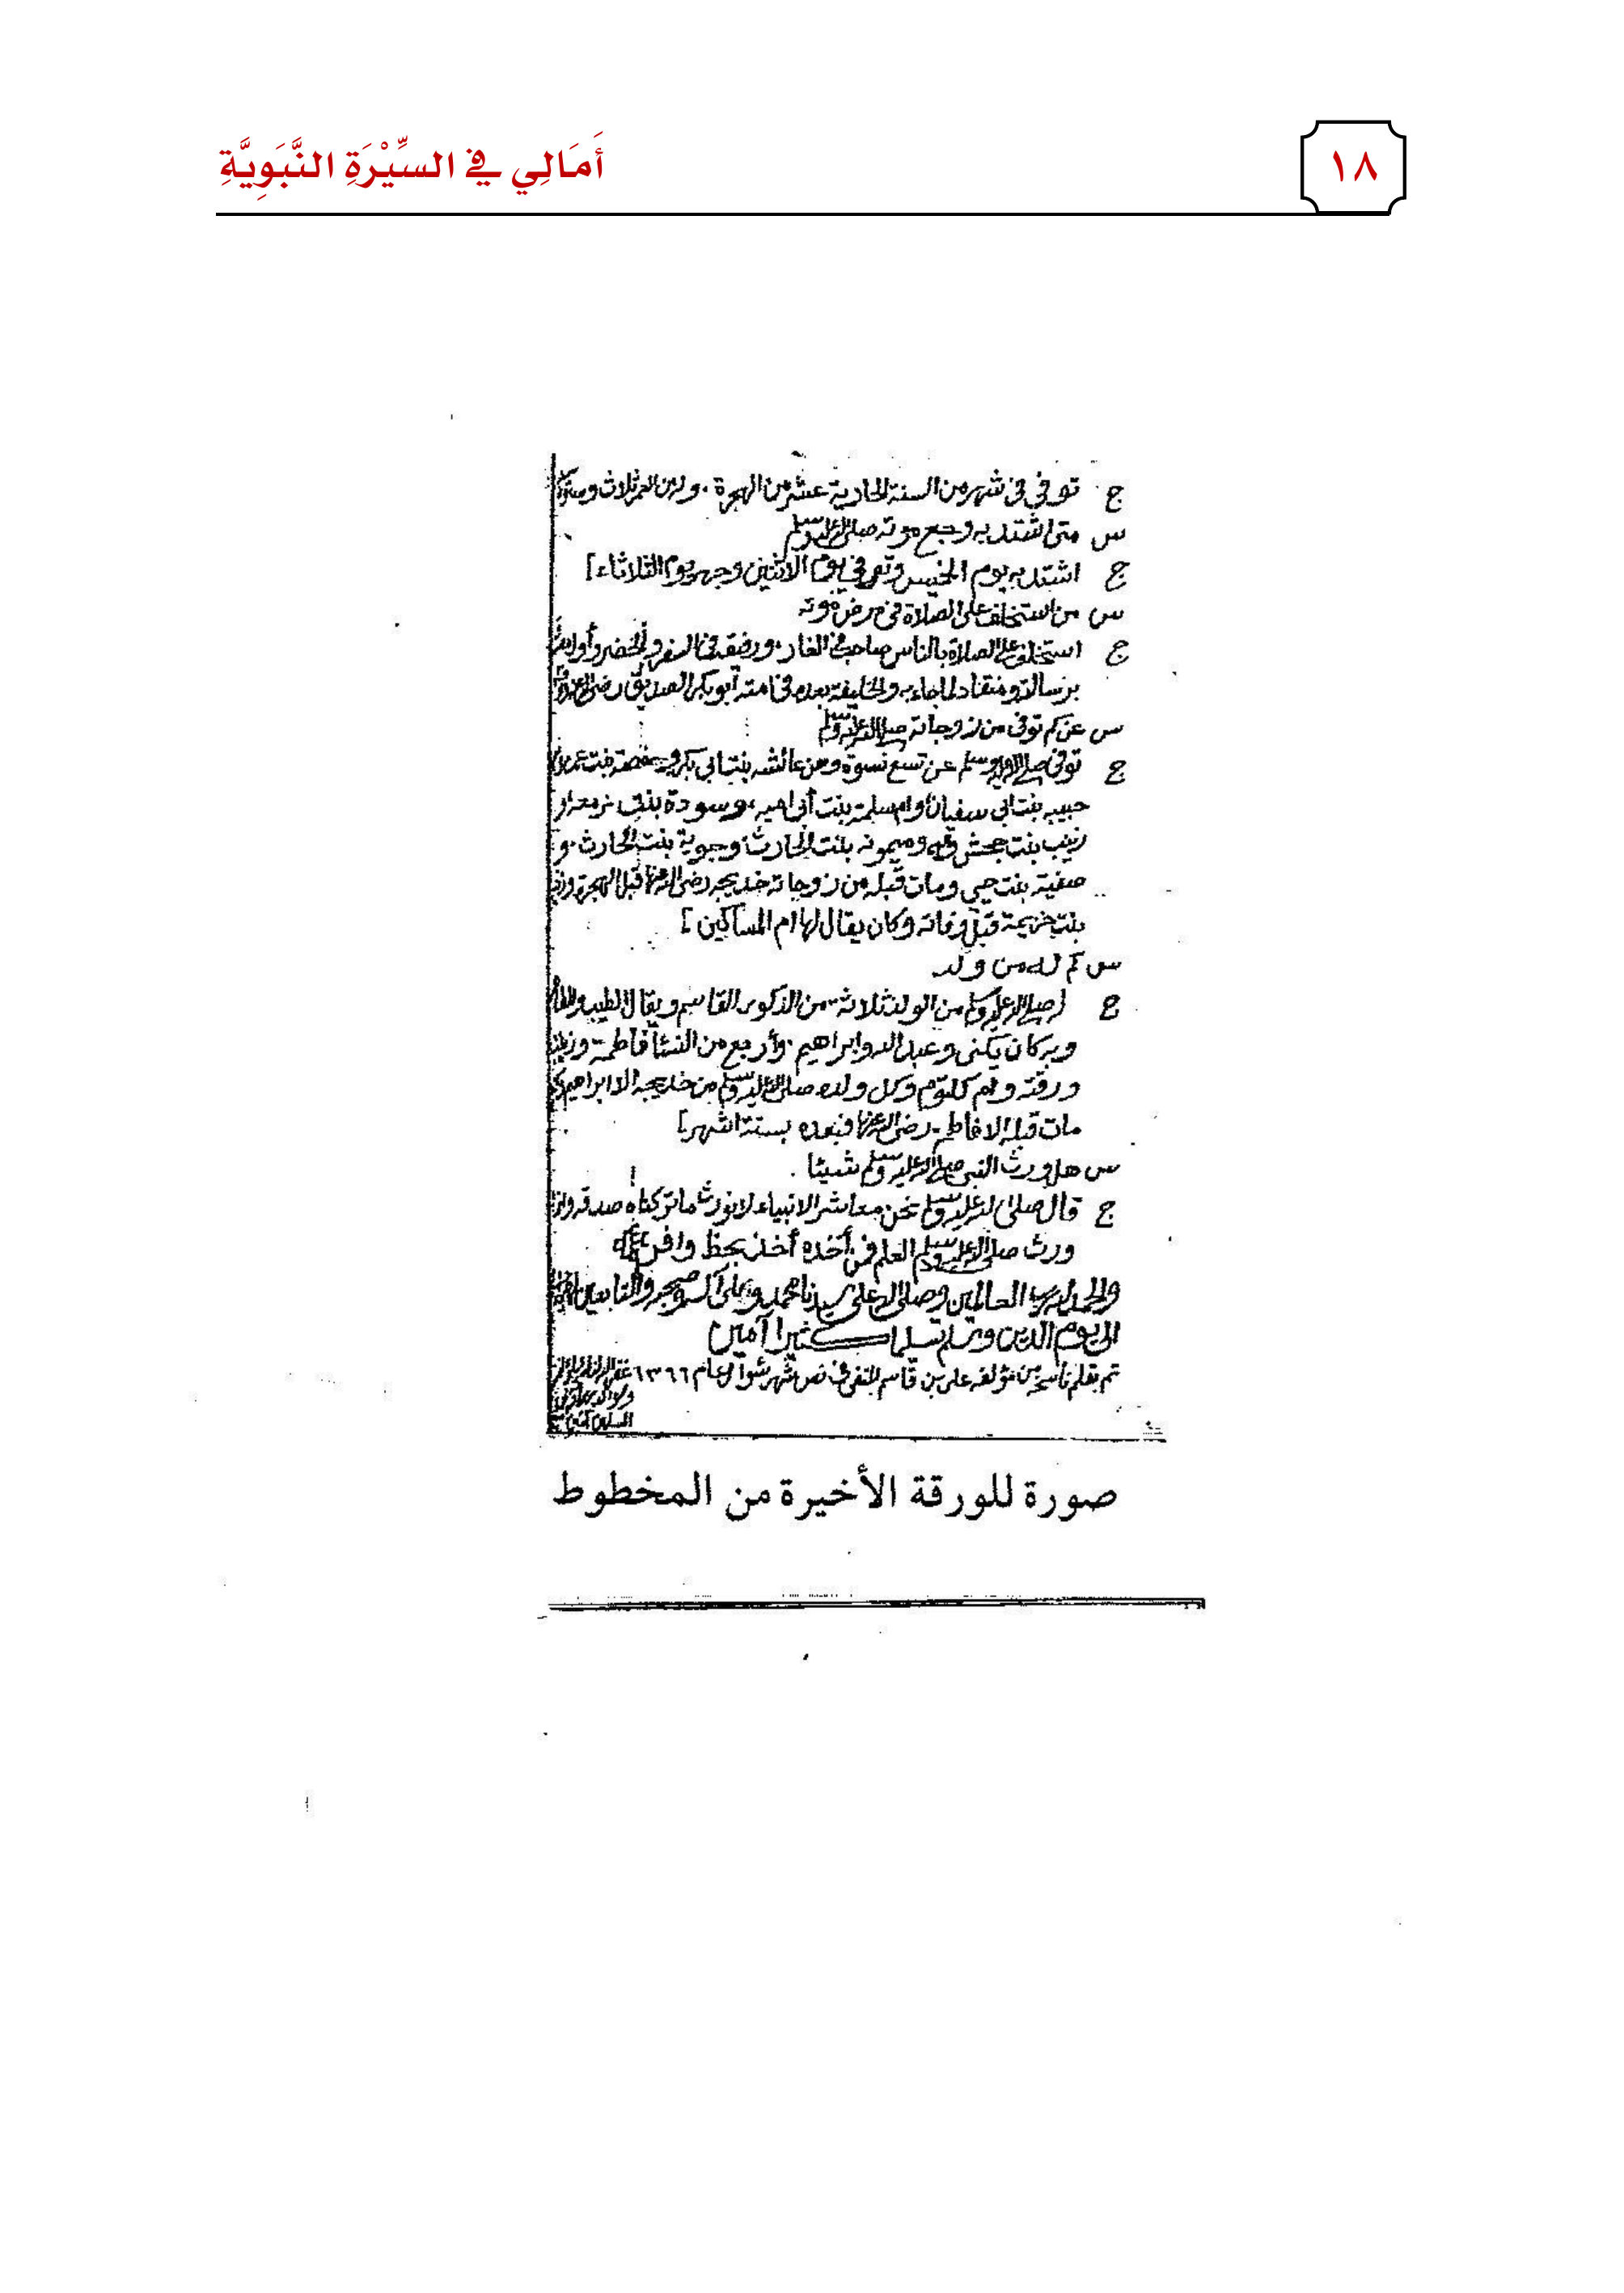 أَمَالِي فِي السِّيْرَةِ النَّبَوِيَّةِ
١٨
ج توفي في شهر من السنة الحادية عشر من الهجرة . وله من العمر ثلاث وستون
س متى اشتد به وجع موته صلى الله عليه وسلم
ج اشتد به يوم الخميس وتوفي يوم الاثنين وجهز يوم الثلاثاء ]
س من استخلف على الصلاة في مرض موته
ج استخلف على الصلاة بالناس صاحبه في الغار . ورفيقه في السفر والحضر وأول
برسالته ومنقاد لما جاء به والخليفة بعده في امته أبو بكر الصديق رضي الله
س عن كم توفي من زوجاته صلى الله عليه وسلم
ج توفي صلى الله عليه وسلم عن تسع نسوة وهن عائشه بنت ابي بكر وحفصة بنت عمر
حبيبه بنت ابي سفيان وام سلمة بنت أبي اميه . وسودة بنت زمعه و
زينب بنت جحش وميمونه بنت الحارث وجويرية بنت الحارث . و
صفية بنت حيي ومات قبله من زوجاته خديجه رضي الله عنها قبل الهجرة
بنت خزيمة قبل وفاته وكان يقال لها ام المساكين ]
س كم له من ولد
ج له صلى الله عليه وسلم من الولد ثلاثة من الذكور القاسم ويقال الطيب
وبه كان يكنى وعبد الله وابراهيم . وأربع من النساء فاطمة وزينب
ورقية وام كلثوم وكل ولده صلى الله عليه وسلم من خديجه الا ابراهيم
مات قبله الا فاطمة رضي الله عنها فبعده بستة اشهر ]
س هل ورث النبي صلى الله عليه وسلم شيئا .
ج قال صلى الله عليه وسلم نحن معاشر الانبياء لا نورث ما تركناه صدقه وانما
ورث صلى الله عليه وسلم العلم فمن أخذه أخذ بحظ وافر
والحمد لله رب العالمين وصلى الله على سيدنا محمد وعلى آله وصحبه والتابعين
الى يوم الدين وسلم تسليما كثيرا آمين
تم بقلم ناسخه من مؤلفه علي بن قاسم الفيفي في شهر شوال عام ١٣٩٦
صورة للورقة الأخيرة من المخطوط